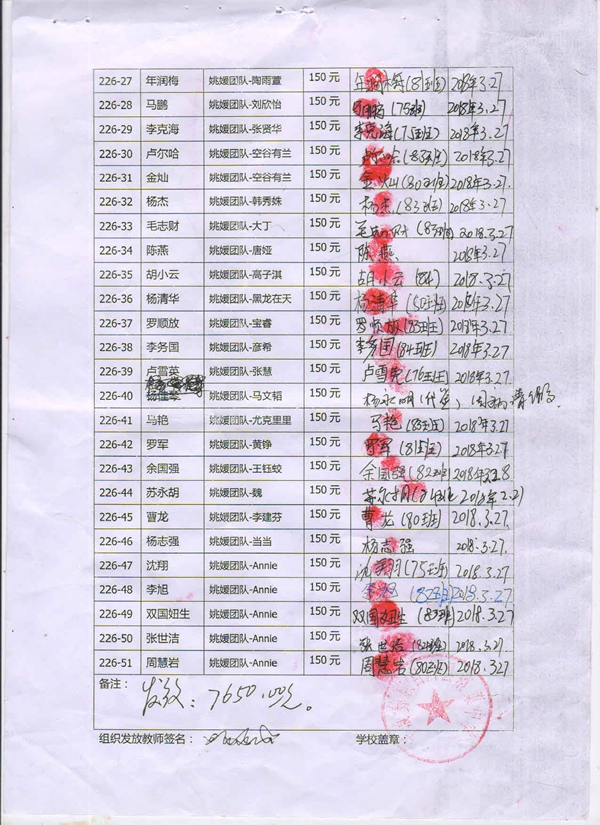 226-27 年润梅 姚媛团队-陶雨萱 150 元 年润梅(81班) 2018年3.27
226-28 马鹏 姚媛团队-刘欣怡 150 元 (75班) 2018年3.27
226-29 李克海 姚媛团队-张贤华 150 元 李克海(75班) 2018年3.27
226-30 卢尔哈 姚媛团队-空谷有兰 150 元 卢尔哈(83班) 2018年3.27
226-31 金灿 姚媛团队-空谷有兰 150 元 金灿(80班) 2018年3.27.
226-32 杨杰 姚媛团队-韩秀姝 150 元 杨杰(83班) 2018年3.27
226-33 毛志财 姚媛团队-大丁 150 元 (83班) 2018.3.27
226-34 陈燕 姚媛团队-唐娅 150 元 陈燕 2018年3.27
226-35 胡小云 姚媛团队-高子淇 150元 胡小云(84) 2018.3.27
226-36 杨清华 姚媛团队-黑龙在天 150元 杨清华(50班) 2018年3.27
226-37 罗顺放 姚媛团队-宝睿 150元 罗顺放(83班) 2018年3.27
226-38 李务国 姚媛团队-彦希 150元 李务国(84班) 2018年3.27
226-39 卢雪英 姚媛团队-张慧 150元 卢雪英(76班) 2018年3.27
226-40 杨佳琴 姚媛团队-马文韬 150元
226-41 马艳 姚媛团队-尤克里里 150元 马艳(83班) 2018年3.27
226-42 罗军 姚媛团队-黄铮 150元 罗军(81班) 2018年3.27
226-43 余国强 姚媛团队-王钰蛟 150元 余国强(82班)
226-44 苏永胡 姚媛团队-魏 150元
226-45 曹龙 姚媛团队-李建芬 150元 曹龙(80班) 2018.3.27
226-46 杨志强 姚媛团队-当当 150元 杨志强 2018.3.27
226-47 沈翔 姚媛团队-Annie 150元 沈翔(75班) 2018.3.27
226-48 李旭 姚媛团队-Annie 150元 李旭(82班) 2018.3.27
226-49 双国妞生 姚媛团队-Annie 150元 双国妞生(83班) 2018.3.27
226-50 张世洁 姚媛团队-Annie 150元 张世洁(82班) 2018.3.27
226-51 周慧岩 姚媛团队-Annie 150元 周慧岩(80班) 2018.3.27
备注：
发放：7650.00元。
组织发放教师签名： 学校盖章：